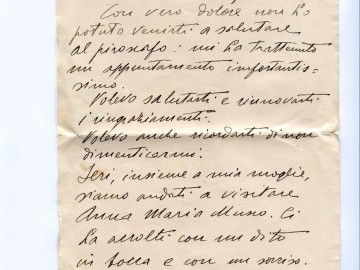 Con vero dolore non ho
potuto venirti a salutare
al piroscafo: mi ha trattenuto
un appuntamento importantis-
simo.
Volevo salutarti e rinnovarti
i ringraziamenti.
Volevo anche ricordarti di non
dimenticarmi.
Ieri, insieme a mia moglie,
siamo andati a visitare
Anna Maria Ci
ha accolti con un dito
in bocca e con un sorriso